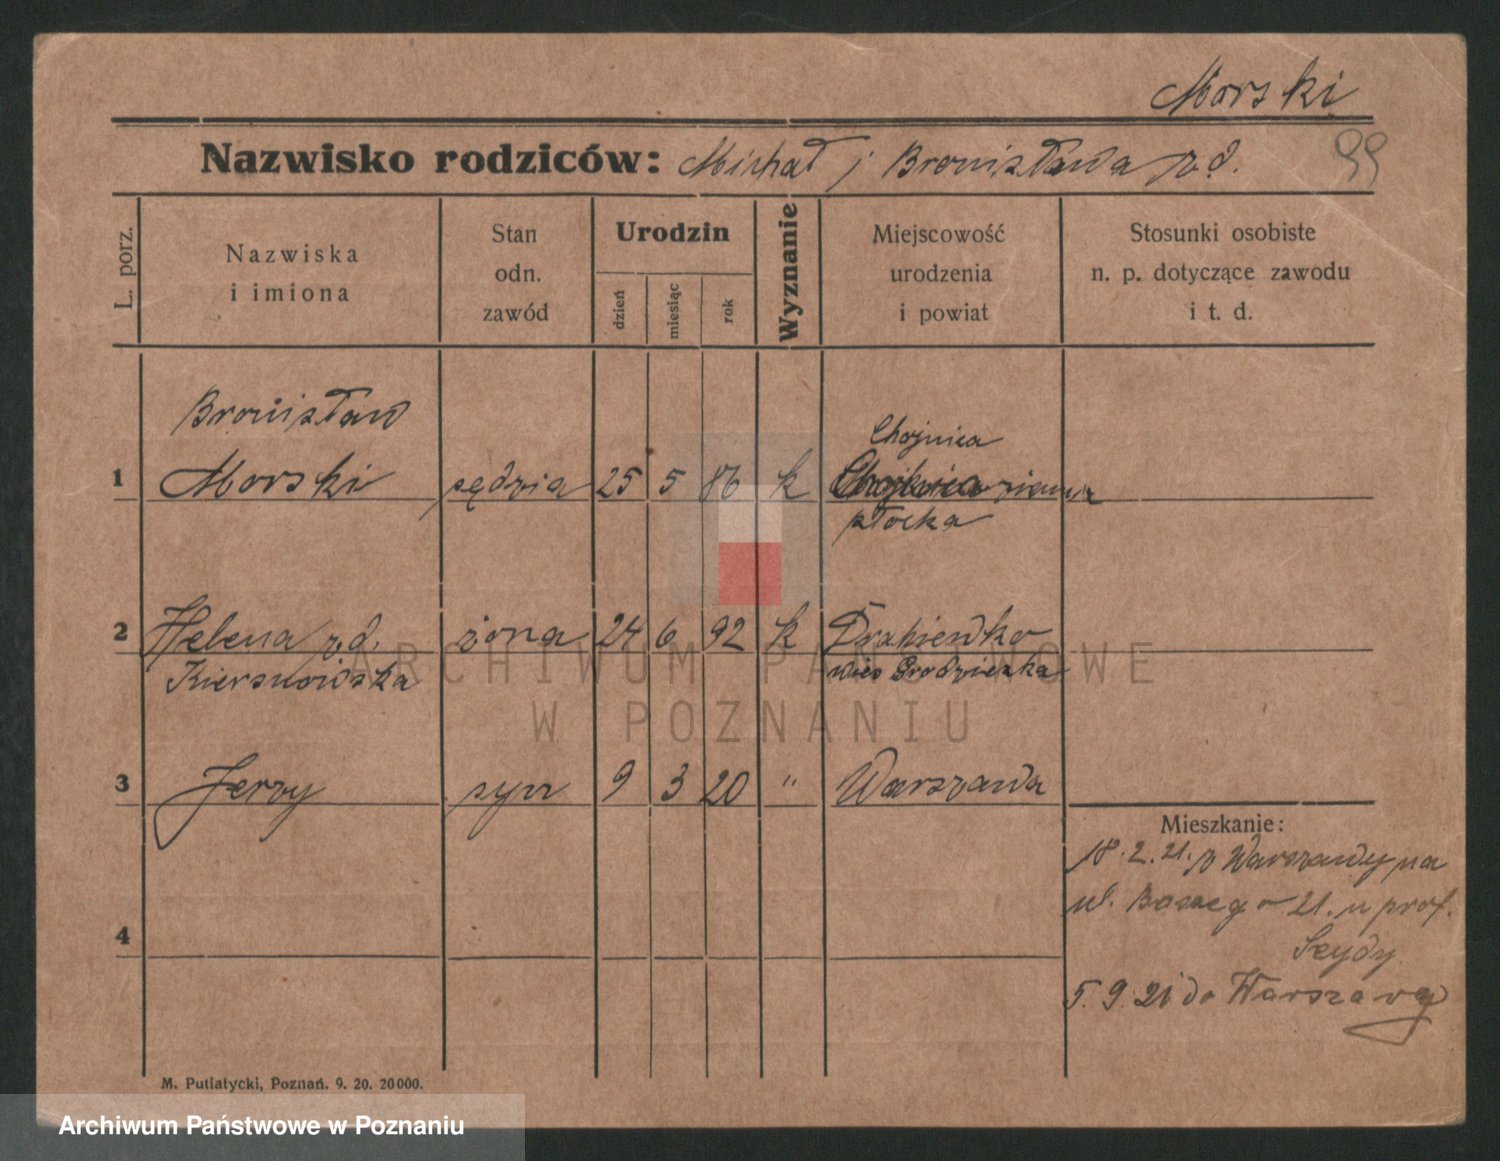 Morski
Nazwisko rodziców: Michał i Bronisława z d. 99
L. porz.
Nazwiska
i imiona
Stan
odn.
zawód
Urodzin
dzień
miesiąc
rok
Wyznanie
Miejscowość
urodzenia
i powiat
Stosunki osobiste
n. p. dotyczące zawodu
i t. d.
Bronisław
Chojnica
1 Morski sędzia 25 5 86 k ziemia
płocka
2 Helena z d. żona 24 6 92 k
Kiersnowska
3 Jerzy syn 9 3 20 " Warszawa
Mieszkanie:
18. 2. 21. z Warszawy na
ul. 21. u prof.
4
Szydy.
5. 9. 21 do Warszawy
M. Putiatycki, Poznań. 9. 20. 20000.
ARCHIWUM PAŃSTWOWE
W POZNANIU
Archiwum Państwowe w Poznaniu